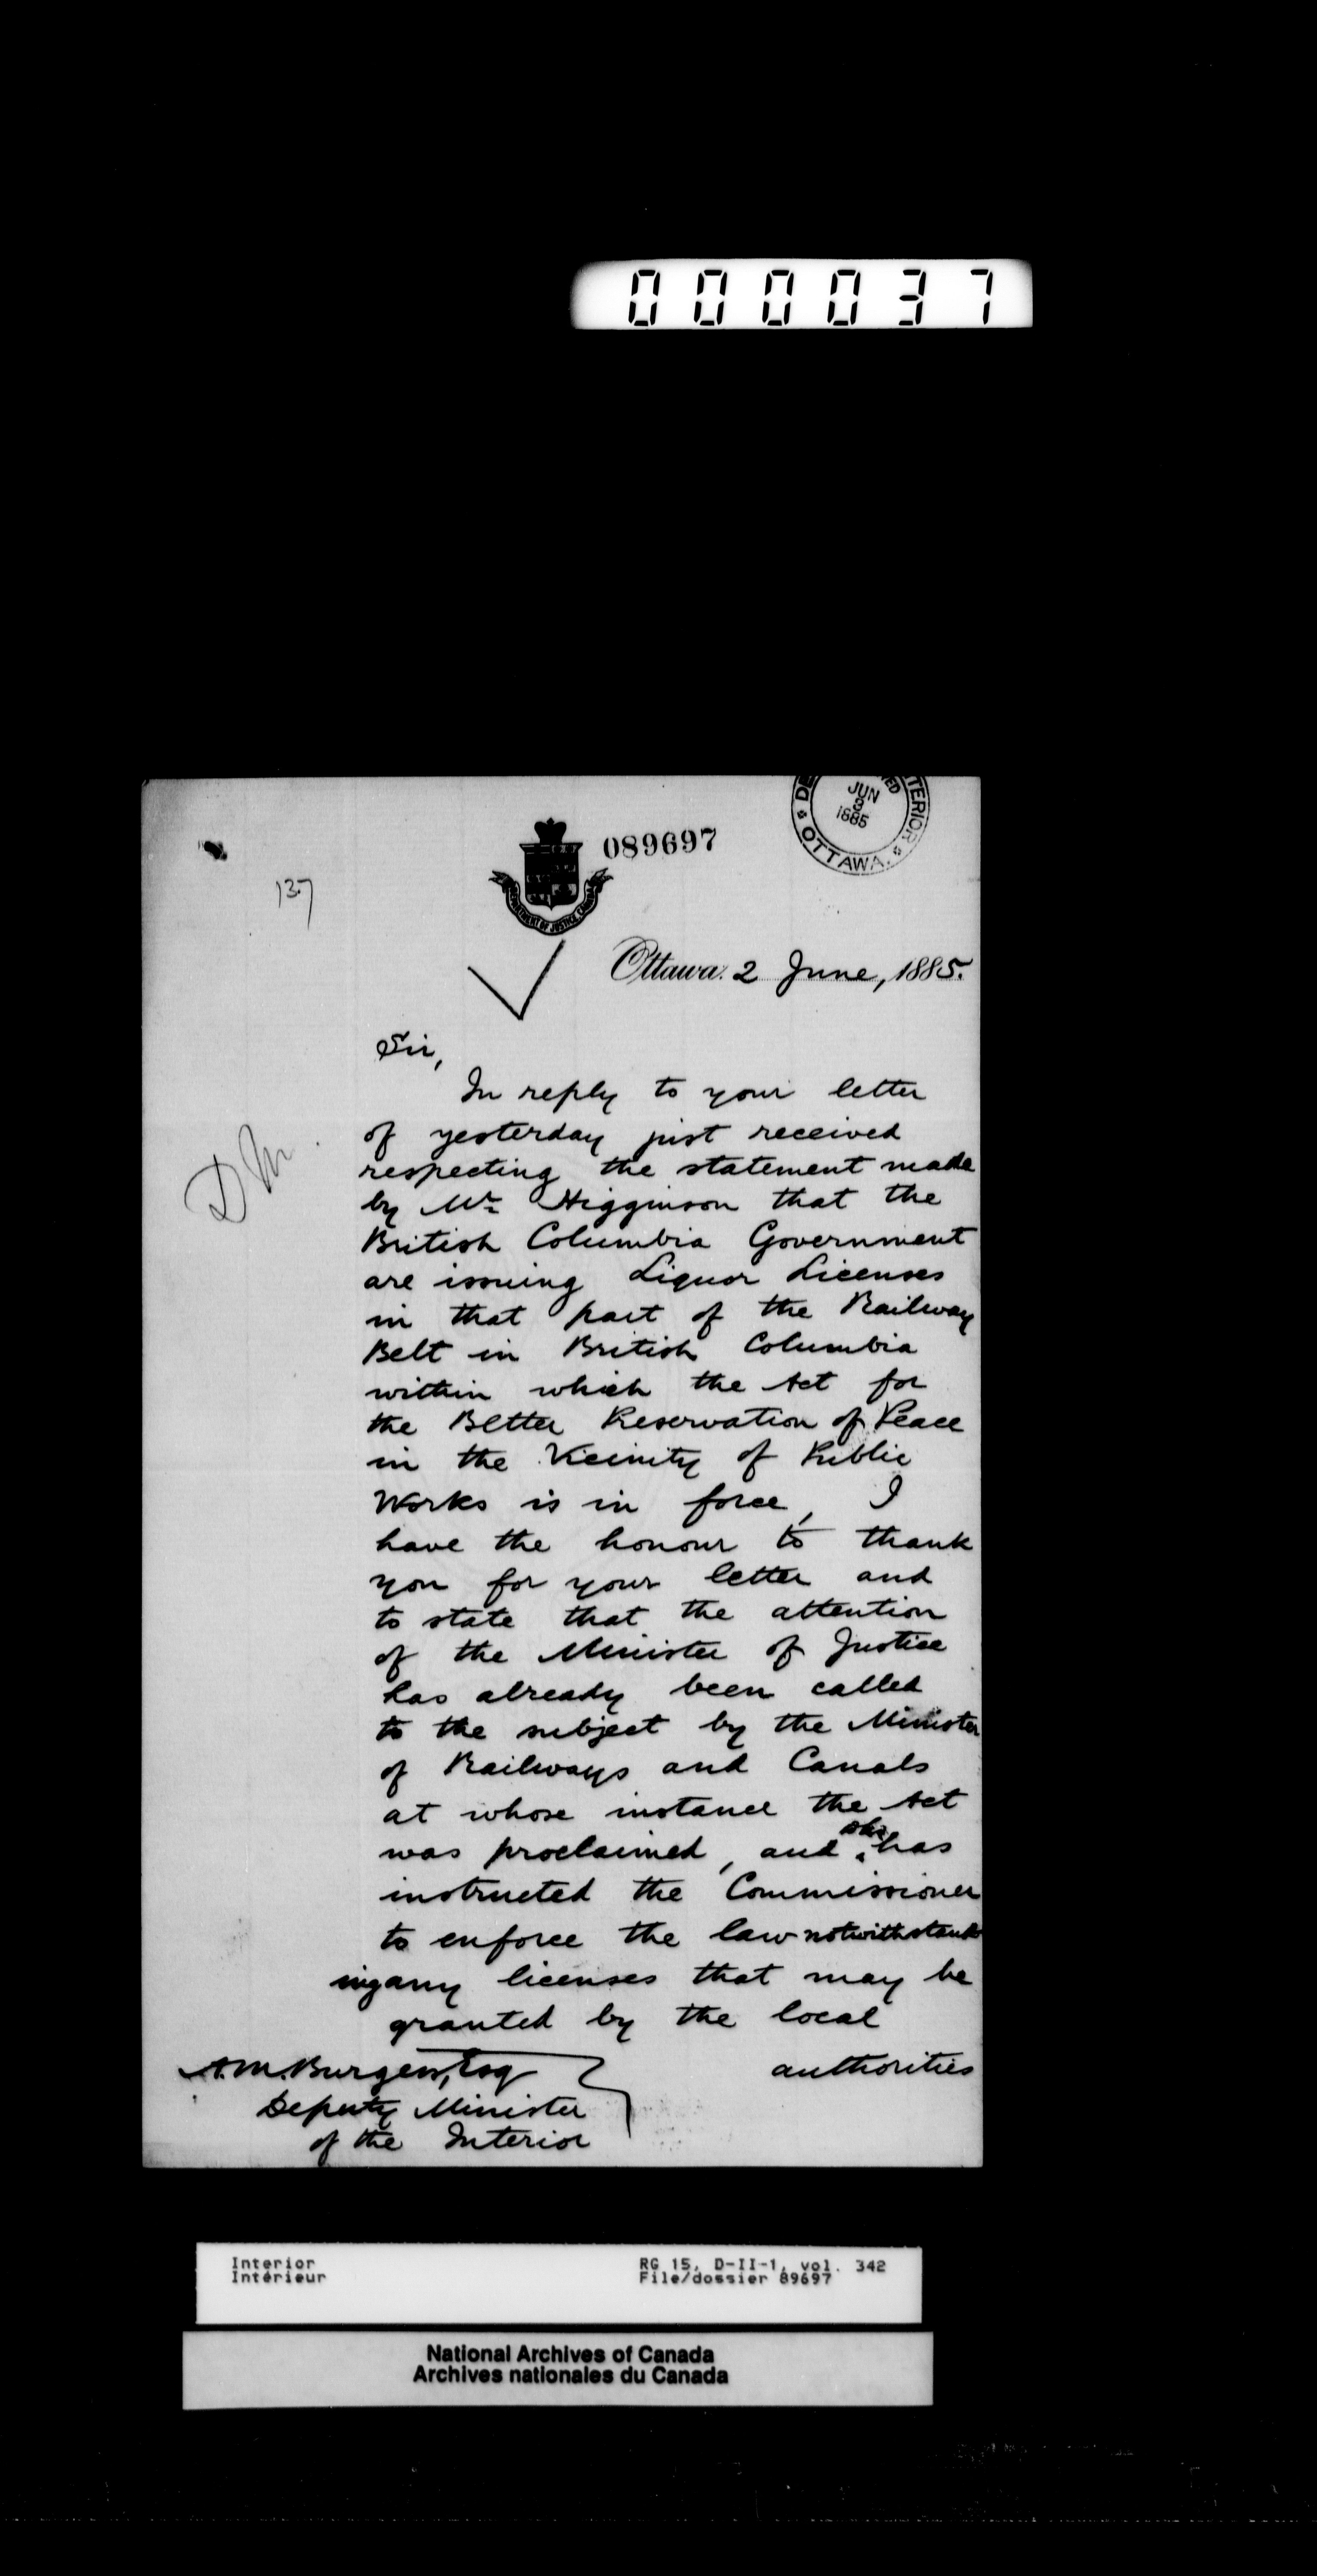 000037
JUN
3
1885
TERIOR
OTTAWA.
089697
137
DEPARTMENT OF JUSTICE, CANADA
Ottawa. 2 June, 1885.
Sir,
In reply to your letter
of yesterday just received
D M.
respecting the statement made
by Mr Higginson that the
British Columbia Government
are issuing Liquor Licenses
in that part of the Railway
Belt in British Columbia
within which the Act for
the Better Preservation of Peace
in the Vicinity of Public
Works is in force, I
have the honour to thank
you for your letter and
to state that the attention
of the Minister of Justice
has already been called
to the subject by the Minister
of Railways and Canals
at whose instance the Act
was proclaimed, and has
instructed the Commissioner
to enforce the law notwithstand
ing any licenses that may be
granted by the local
authorities
A.M. Burgess, Esq
Deputy Minister
of the Interior
Interior
Intérieur
RG 15, D-II-1, vol. 342
File/dossier 89697
National Archives of Canada
Archives nationales du Canada